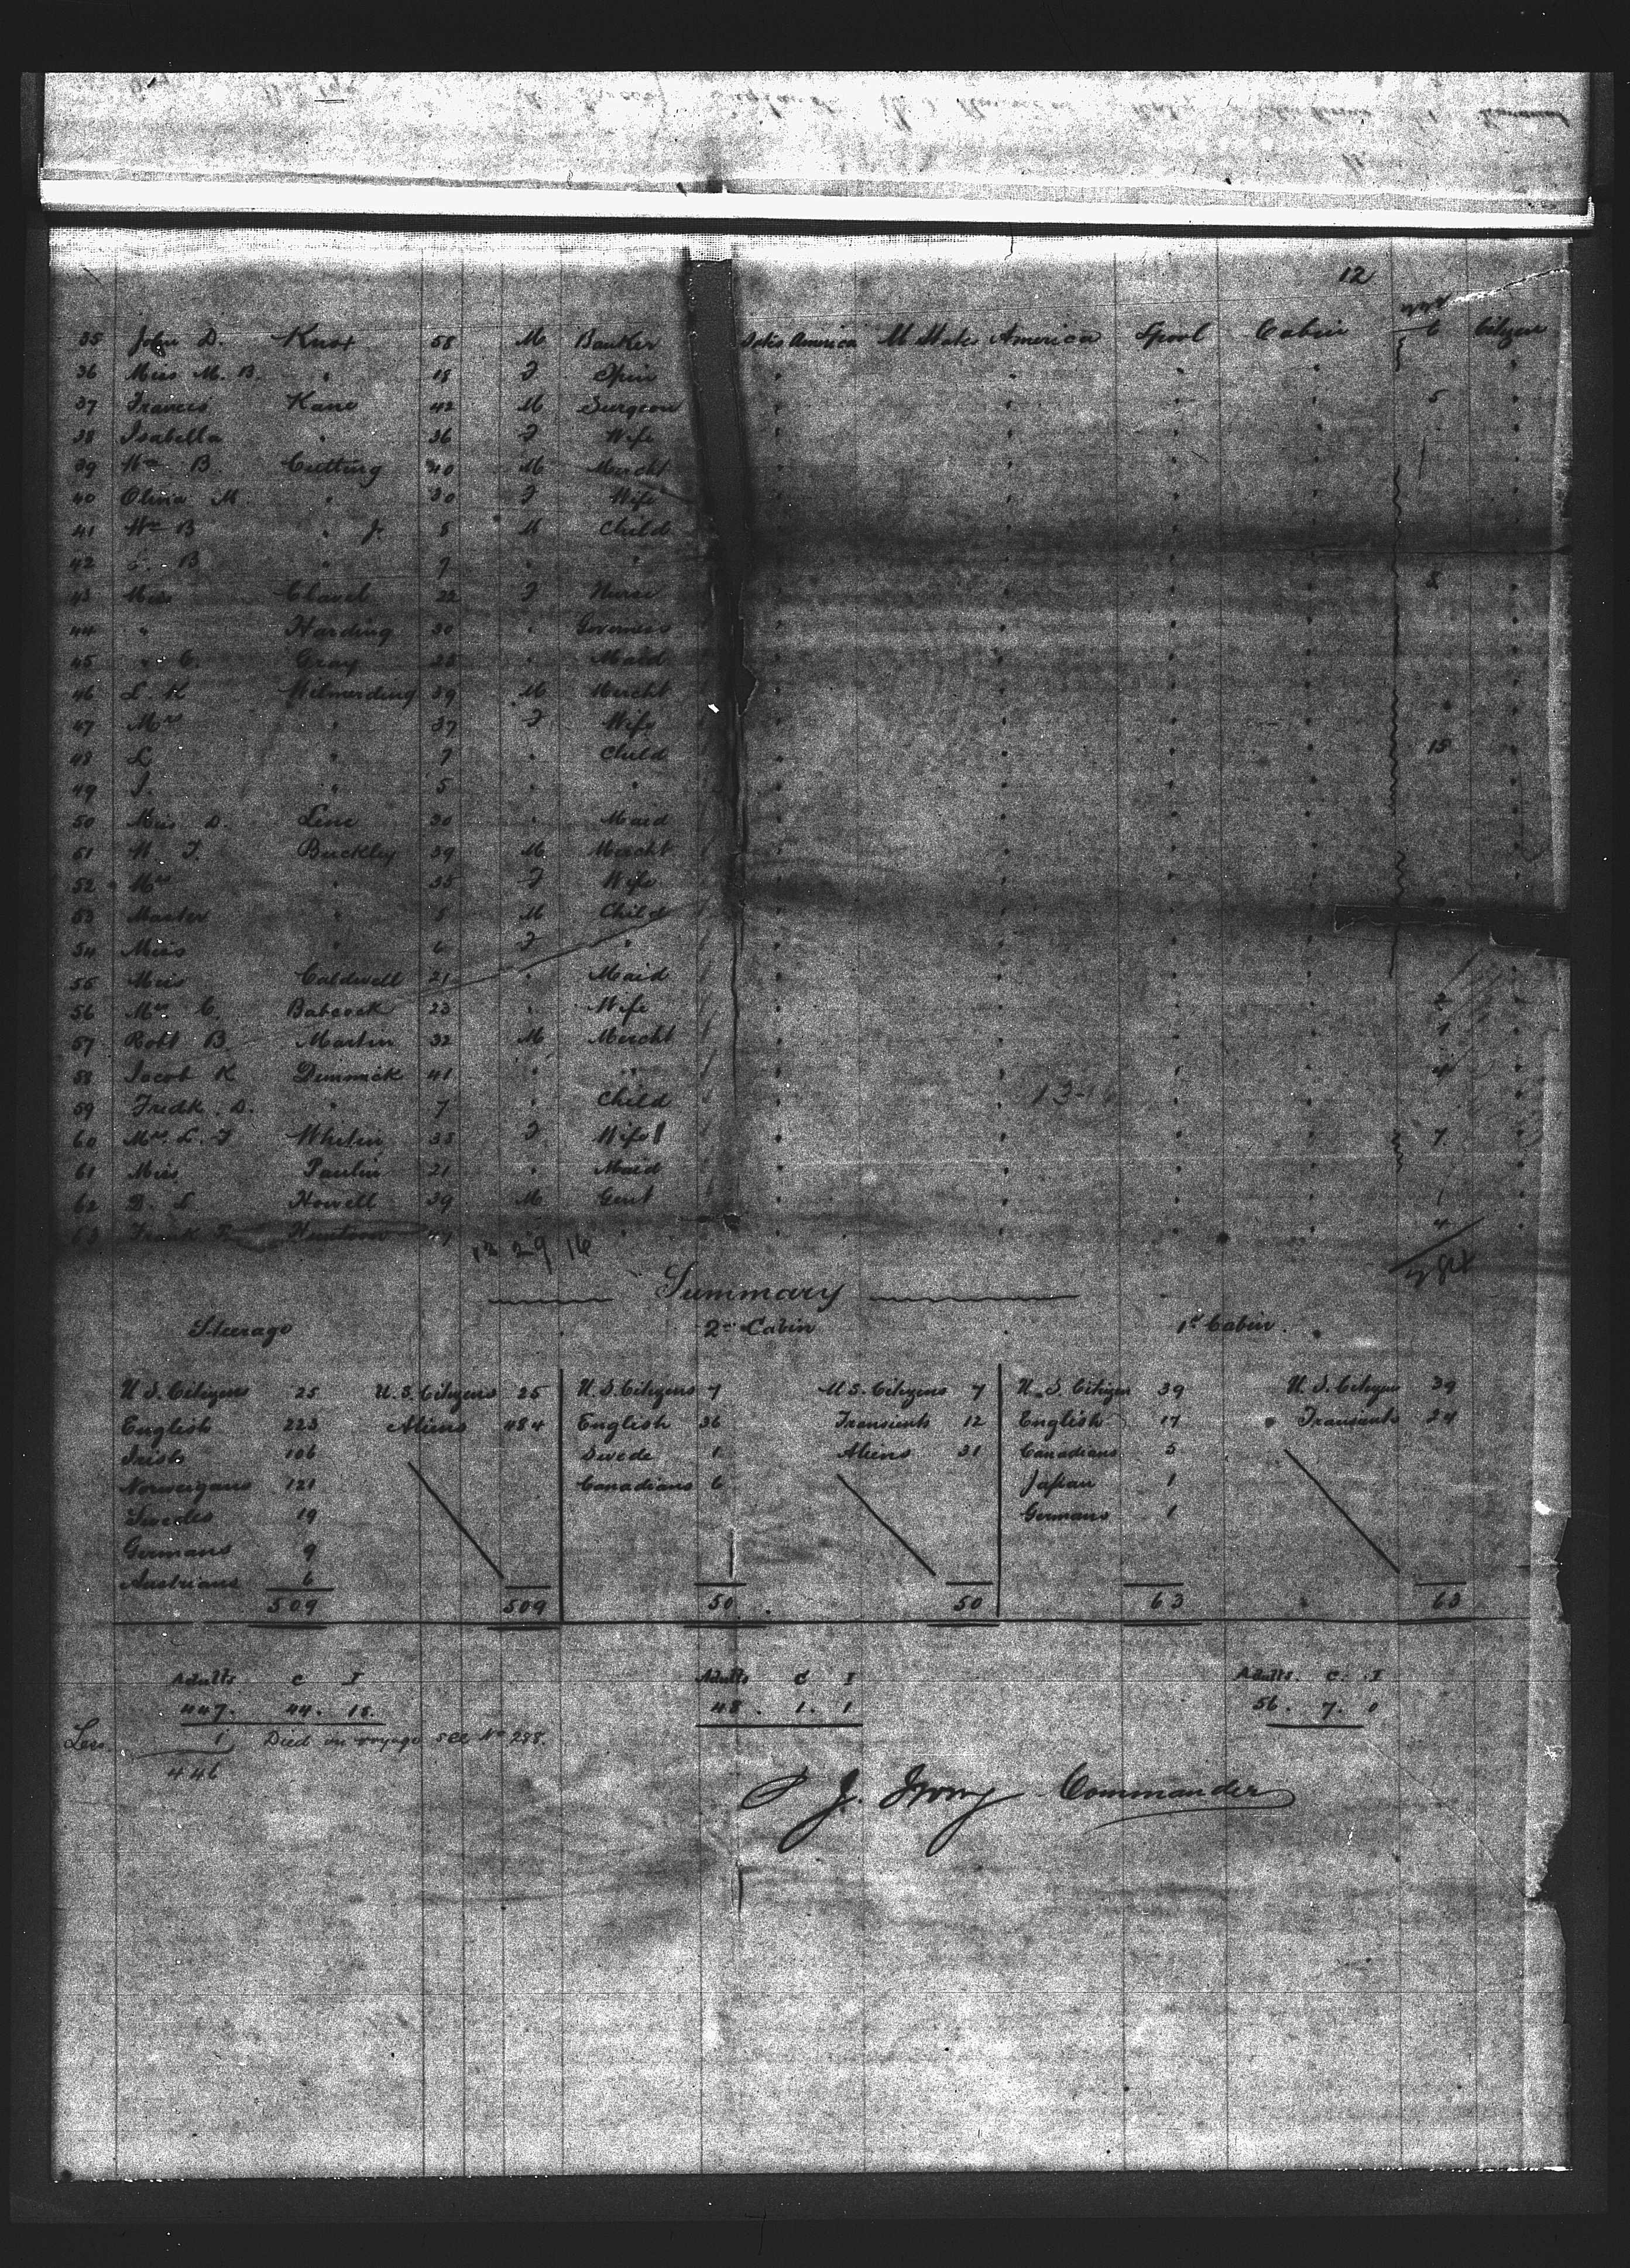 12
35 John D. Knox 58 M Banker Sts America U States America Lpool Cabin 6 Citizen
36 Miss M. B. " 18 F Spin " " " " "
37 Francis Kane 42 M Surgeon " " " " 5 "
38 Isabella " 36 F Wife " " " " "
39 Wm B. Cutting 40 M Mercht " " " " "
40 M. " 30 F Wife " " " " "
41 Wm B " J. 5 M Child " " " " "
42 B " 7 " " " " " " 8 "
43 Miss 22 F Nurse " " " " "
44 " Harding 30 " Governess " " " " "
45 " C. Gray 25 " Maid " " " " "
46 L. K Wilmerding 39 M Mercht " " " " "
47 Mrs " 37 F Wife " " " " "
48 L " 7 " Child " " " " 15 "
49 J. " 5 " " " " " " "
50 Miss D. Line 30 " Maid " " " " "
51 J. Buckley 39 M Mercht " " " " "
52 Mrs " 35 F Wife " " " " "
53 Master " 5 M Child " " " "
54 Miss " 6 F " " " " "
55 Miss Caldwell 21 " Maid " " " " "
56 Mrs C. Babcock 23 " Wife " " " " 2 "
57 Robt B. Martin 32 M Mercht " " " " 1 "
58 Jacob K Dimmick 41 " " " " " " 4 "
59 Fredk. D. " 7 " Child " " " " "
60 Mrs L. F 35 F Wife " " " " 7 "
61 Miss Paulin 21 " Maid " " " " "
62 D. L Howell 39 M Gent " " " " "
63 Frank " " " " " " 4 "
12 29 16
Summary
Steerage 2nd Cabin 1st Cabin
U. S. Citizens 25 U. S. Citizens 25 U. S. Citizens 7 U. S. Citizens 7 U. S. Citizen 39 U. S. Citizens 39
English 223 Aliens 484 English 36 Transients 12 English 17 Transients 24
Irish 106 Swede 1 Aliens 31 Canadians 5
Norweigans 121 Canadians 6 Japan 1
Swedes 19 Germans 1
Germans 9
Austrians 6
509 509 50 50 63 63
Adults C I Adults C I Adults C. I
447. 44. 18. 48. 1. 1 56. 7. 0
Less 1 Died on voyage see No 288.
446
J. Irving Commander